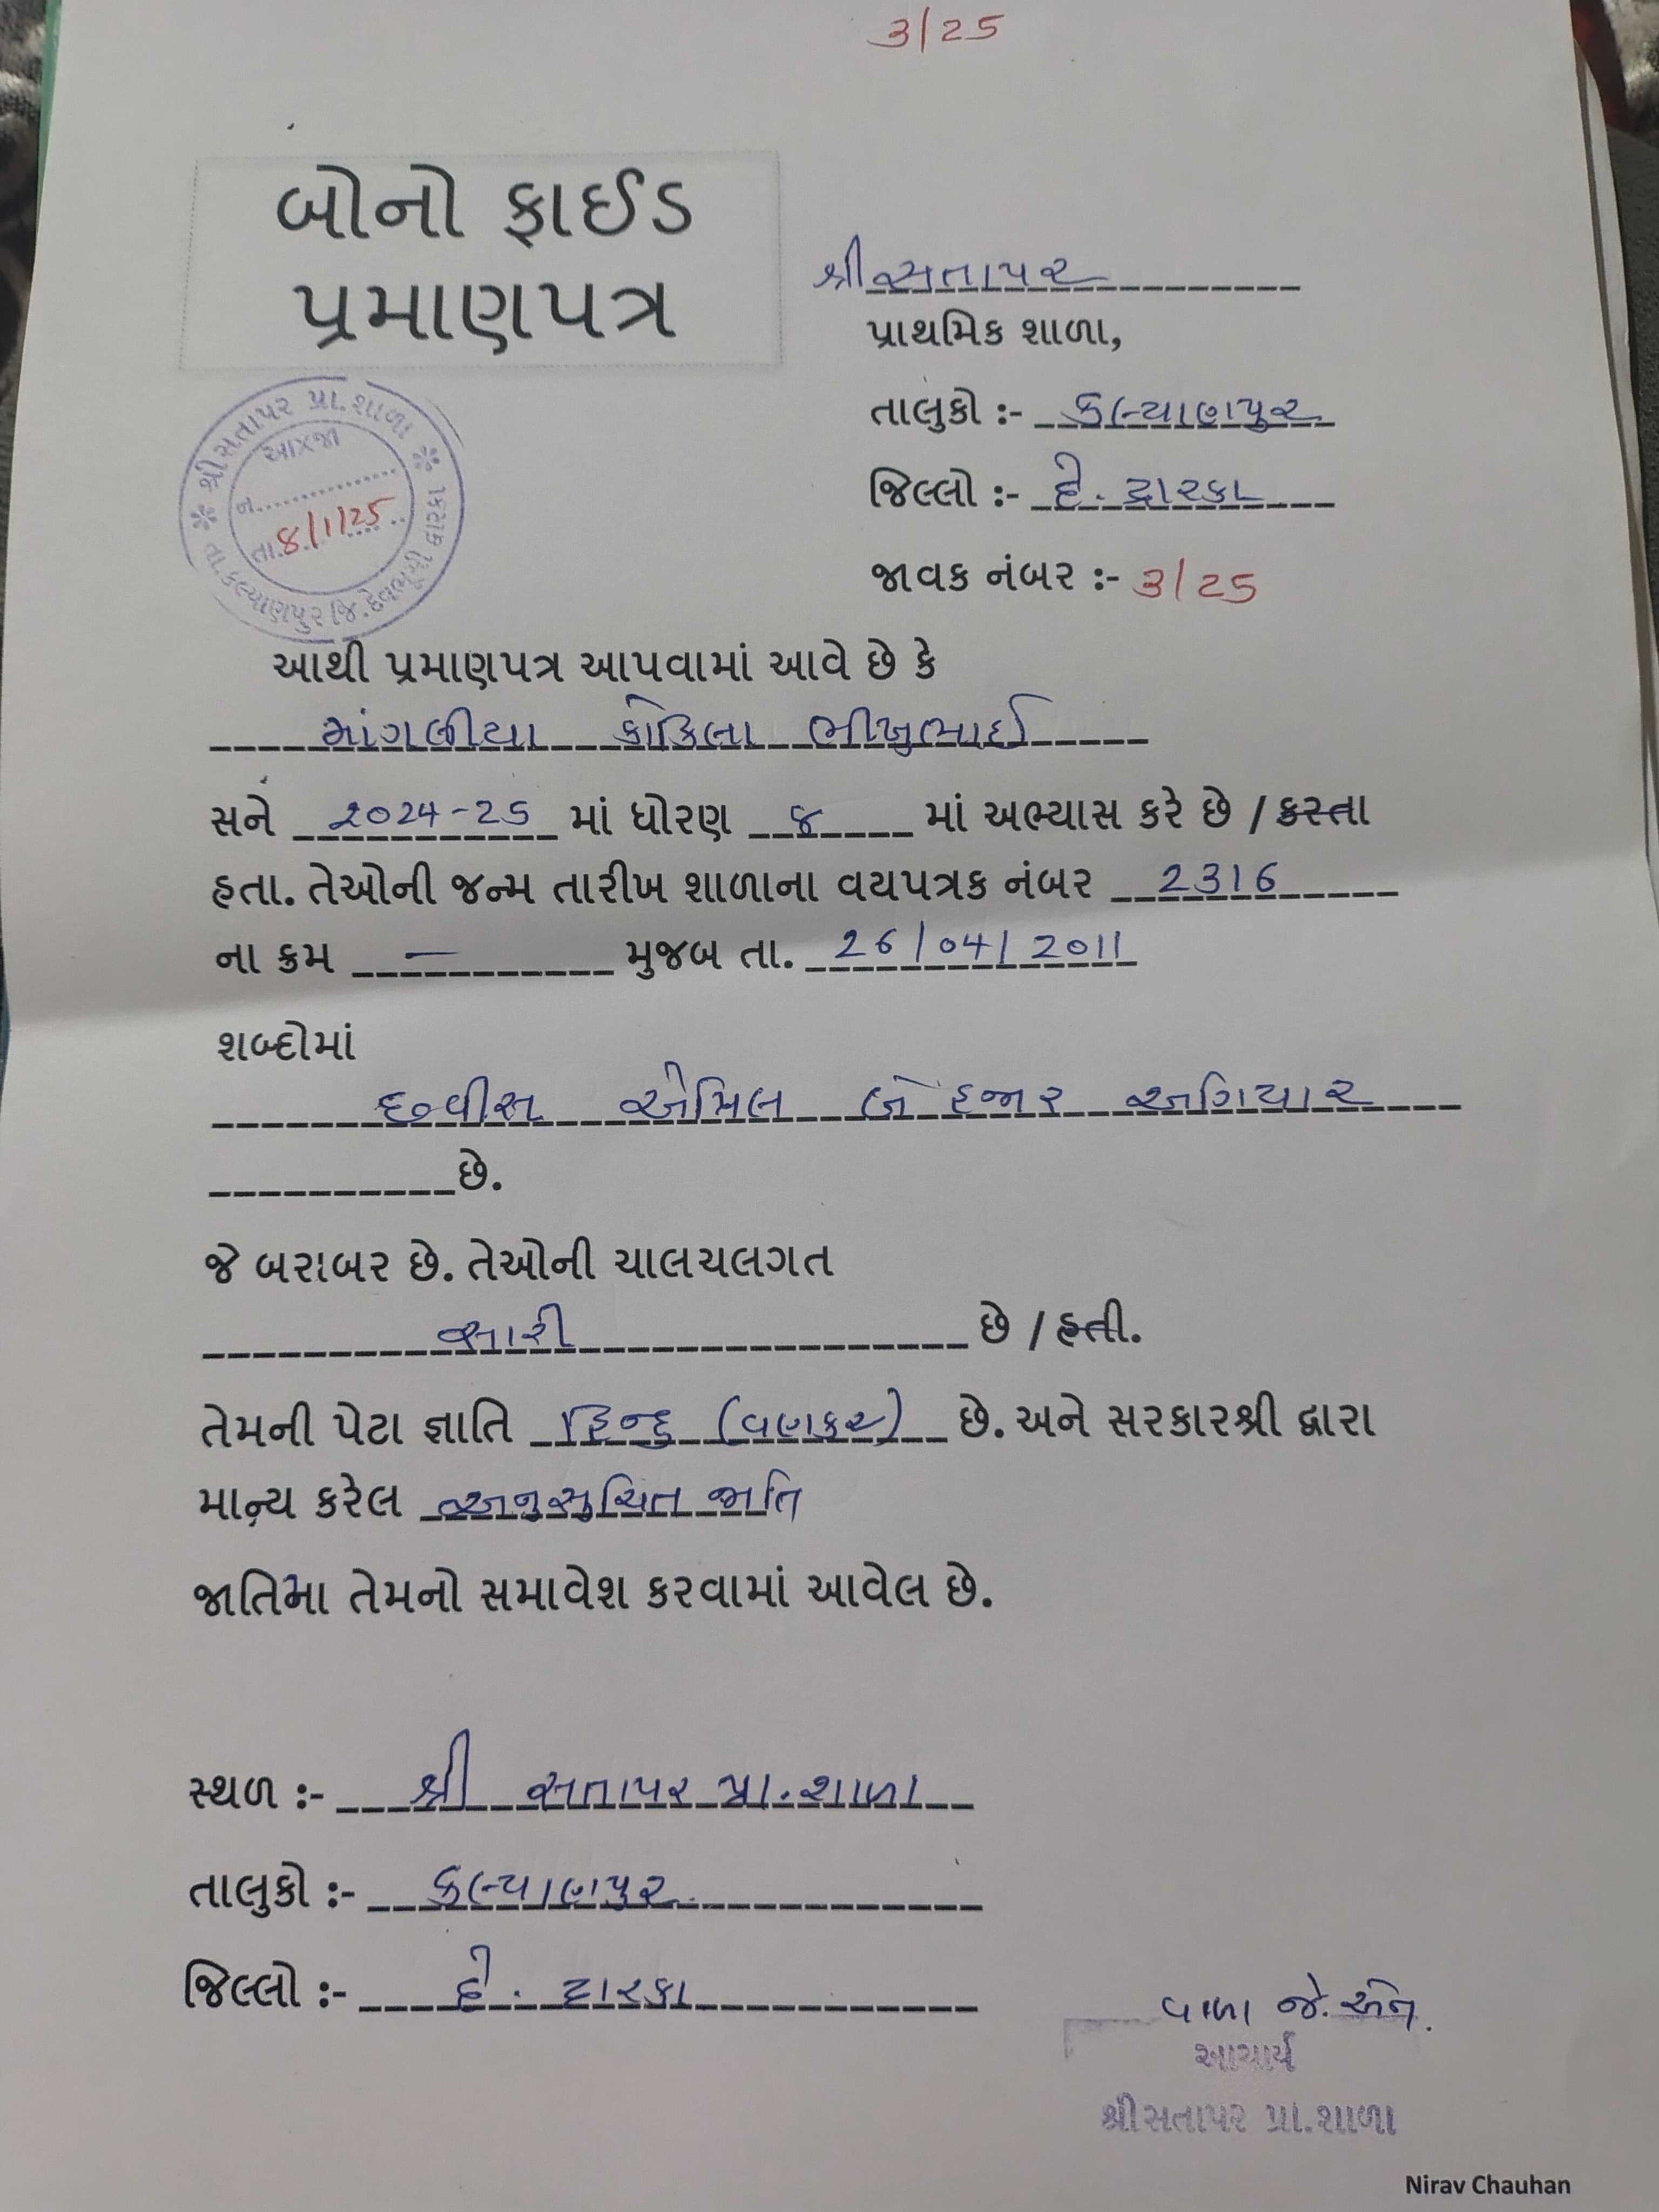 3/25
બોનો ફાઈડ
પ્રમાણપત્ર
શ્રી સતાપર
પ્રાથમિક શાળા,
તાલુકો :- કલ્યાણપુર
જિલ્લો :- દે. દ્વારકા
જાવક નંબર :- 3/25
શ્રી સતાપર પ્રા.શાળા
તા.કલ્યાણપુર જિ.દેવભૂમી દ્વારકા
ન.
તા. 8/1/25
આથી પ્રમાણપત્ર આપવામાં આવે છે કે
માંગલીયા કોકિલા ભીખુભાઈ
સને 2024-25 માં ધોરણ ૪ માં અભ્યાસ કરે છે / કરતા
હતા. તેઓની જન્મ તારીખ શાળાના વયપત્રક નંબર 2316
ના ક્રમ — મુજબ તા. 26/04/2011
શબ્દોમાં
છવ્વીસ એપ્રિલ બે હજાર અગિયાર
છે.
જે બરાબર છે. તેઓની ચાલચલગત
સારી છે / હતી.
તેમની પેટા જ્ઞાતિ હિન્દુ (વણકર) છે. અને સરકારશ્રી દ્વારા
માન્ય કરેલ અનુસુચિત જાતિ
જાતિમા તેમનો સમાવેશ કરવામાં આવેલ છે.
સ્થળ :- શ્રી સતાપર પ્રા.શાળા
તાલુકો :- કલ્યાણપુર
જિલ્લો :- દે. દ્વારકા
વાળા જે. એન.
આચાર્ય
શ્રી સતાપર પ્રા.શાળા
Nirav Chauhan